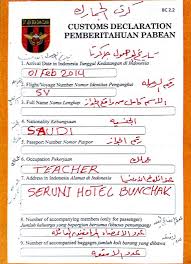 كرت الجمارك
BC 2.2
CUSTOMS DECLARATION
PEMBERITAHUAN PABEAN
1. Arrival Date in Indonesia Tanggal Kedatangan di Indonesia
01 FEB 2014
2. Flight/Voyage Number Nomor Identitas Pengangkut
رقم الرحلة
SV
3. Full Name Nama Lengkap
الاسم كامل
4. Nationality Kebangsaan
الجنسية
SAUDI
5. Passport Number Nomor Paspor
رقم الجواز
6. Occupation Pekerjaan
TEACHER
7. Address in Indonesia Alamat di Indonesia
SERUNI HOTEL BUNCHAK
9. Number of accompanying members (only for passenger)
Jumlah keluarga yang bepergian bersama (khusus penumpang)
عدد
9. Number of accompanied baggages jumlah koli barang yang dibawa
عدد